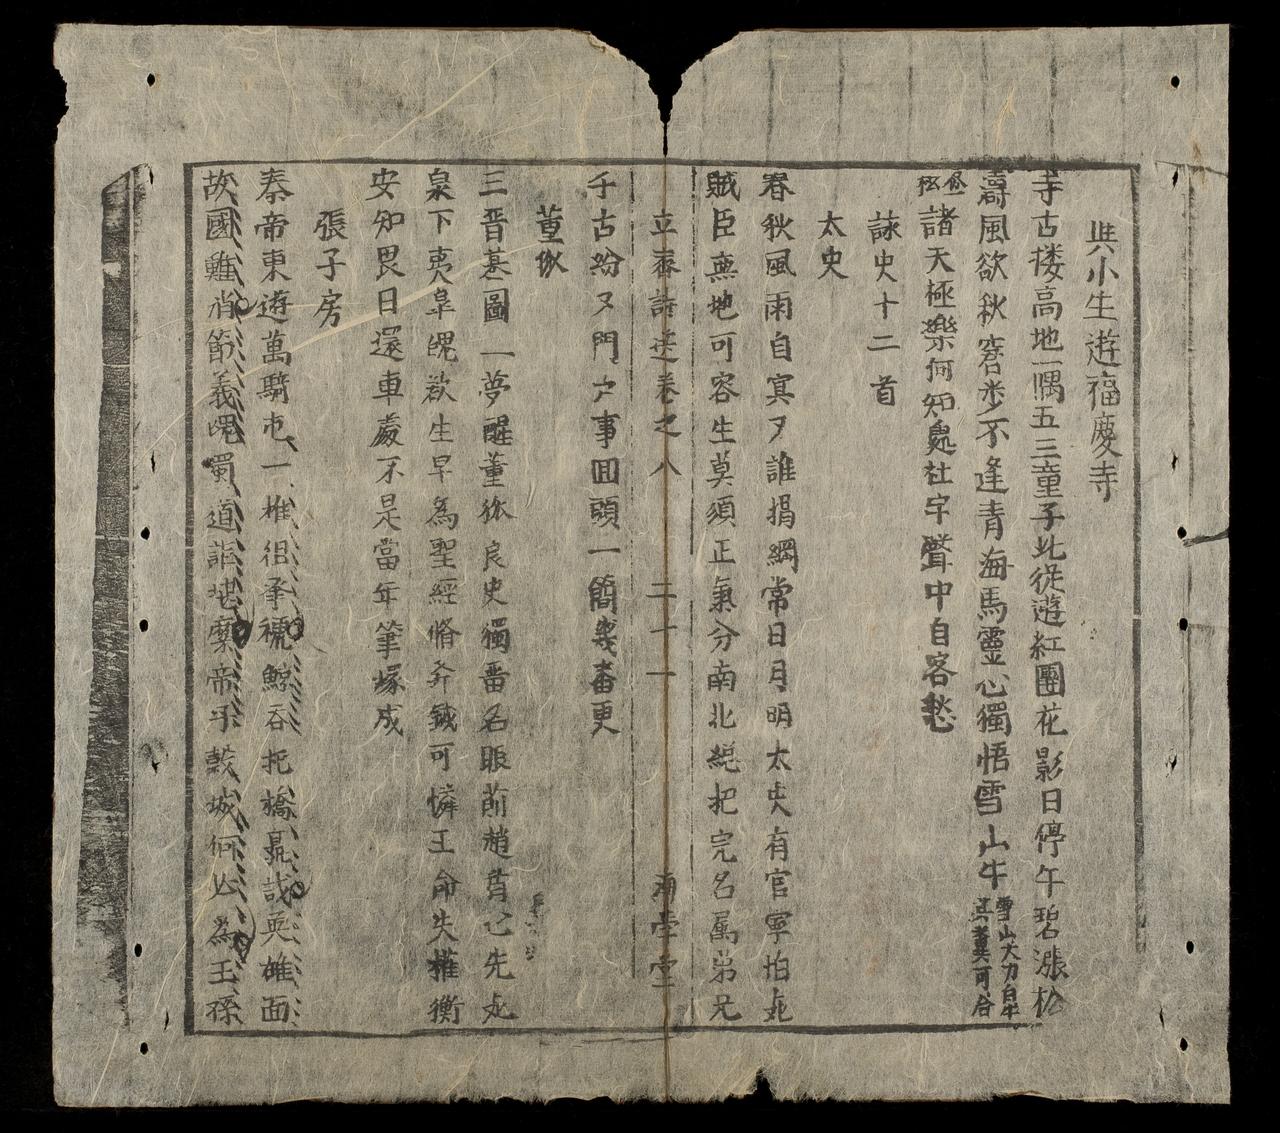 與小生遊福慶寺
寺古楼高地一隅五三童子此從遊紅團花影日停午碧漲松
濤風欲秋窓 不逢青海馬靈心獨悟雪山牛雪山大力白牛其糞可合
修檀諸天極樂何知處杜宇聲中自客愁
詠史十二首
太史
春秋風雨自冥夕誰揭綱常日月明太史有官寧怕死
賊臣無地可容生莫須正氣分南北縂把完名属弟兄
立齋 卷之八 二十一 堂
千古紛又門戸事回頭一簡幾番更
董狐
三晋基圖一夢醒董狐良史獨留名眼前趙盾心先死
泉下夷皐魄欲生早為聖經脩斧鉞可憐王命失權衡
安知畏日還車處不是當年筆塚成
張子房
秦帝東遊萬騎屯一椎徂 鯨吞圯橋 英雄面
故國雖消節義魂蜀道 帝子穀城何必為王孫